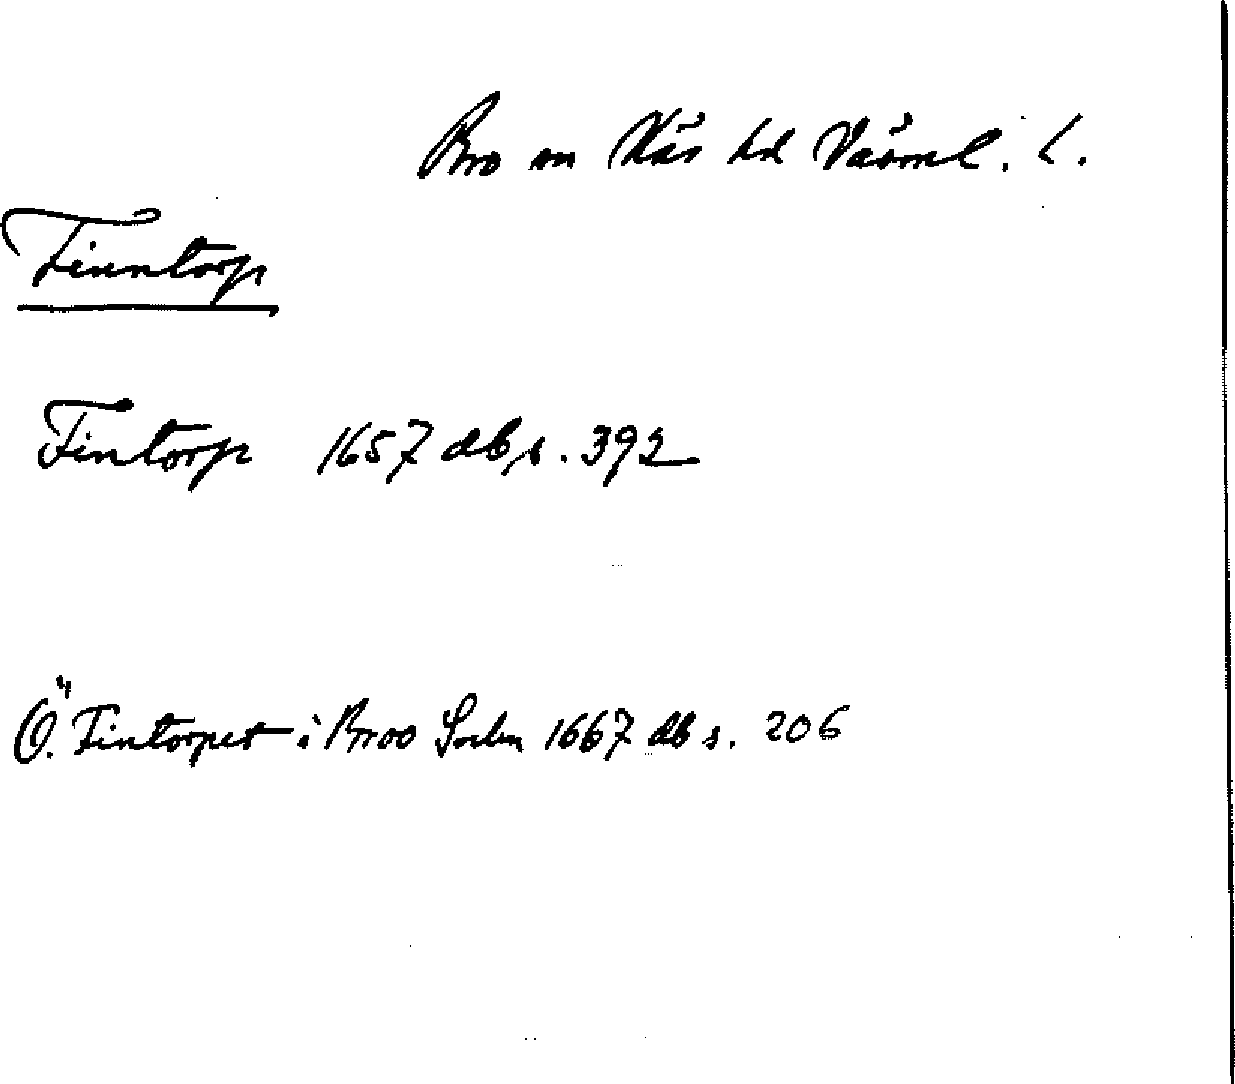 Bro sn Näs hd Värml. L.
Finntorp
Fintorp 1657 db s. 392
Ö. Fintorpet i Broo Sochn 1667 db s. 206